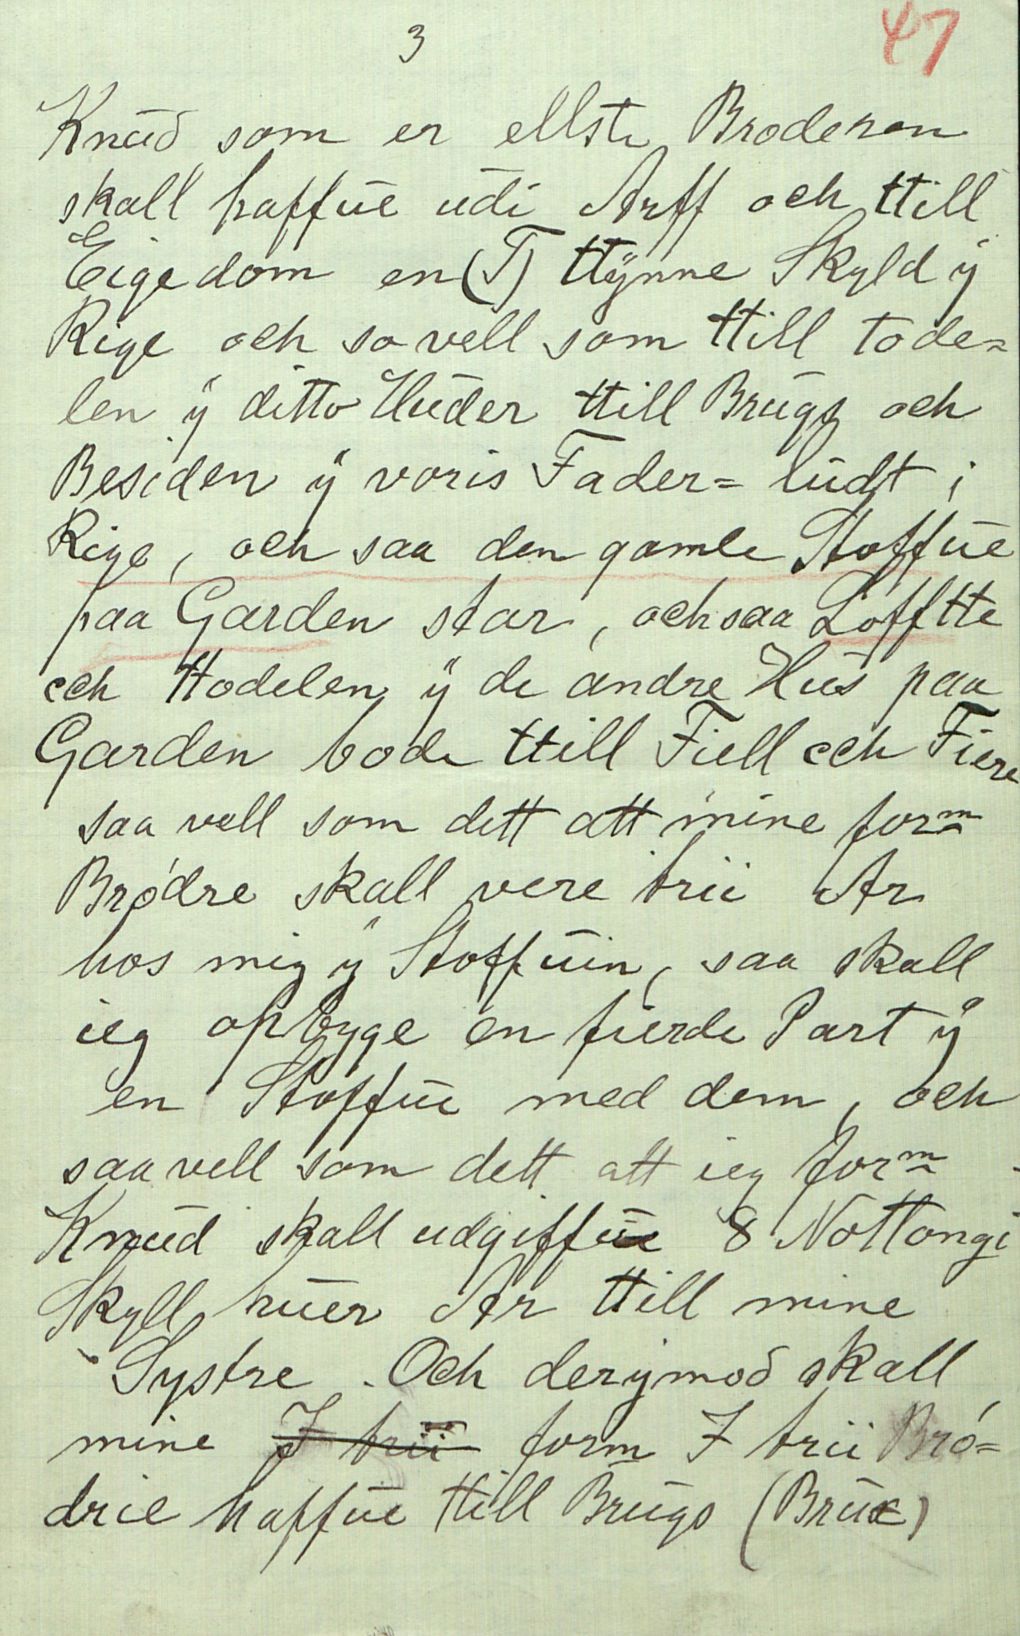 3
47
Knŭd som er ellste Broderen
skall haffŭe ŭdi Arff och ttill
Eigedom en (T) ttÿnne Skyld ÿ
Rige och so vell som ttill tode=
len ÿ ditto Hŭder ttill Brŭgs och
Besiden ÿ voris Fader= lŭdt i
Rige, och saa den gamle Stoffŭe
paa Garden star, och saa Lofftte
och ttodelen ÿ de andre Hŭs paa
Garden bode ttill Fiell och Fiere
saa vell som dett att mine form
Brødre skall vere trii Ar
hos mig ÿ Stoffŭin, saa skall
ieg opbyge en fierde Part ÿ
en Stoffŭe med dem, och
saavell som dett att ieg form
Knŭd skall udgiffŭe 8 Nottongi
Skyll hŭer Ar ttill mine
Systre. Och derÿmod skall
mine I trii form I trii Bró=
drie haffŭe ttill Brŭgs (Brŭc)